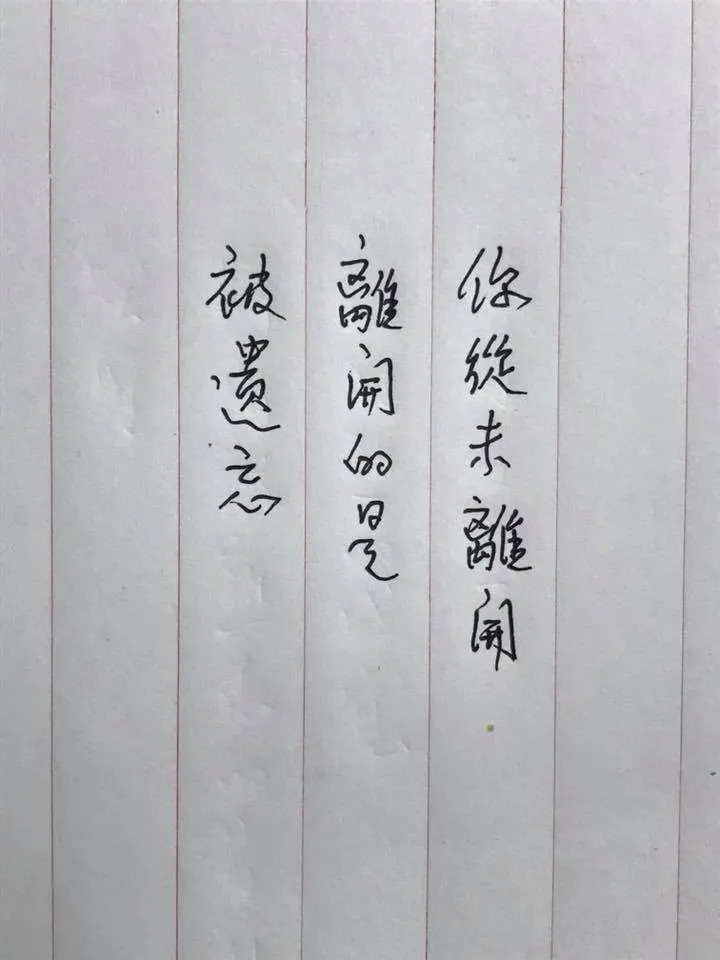 你從未離開
離開的是
被遺忘